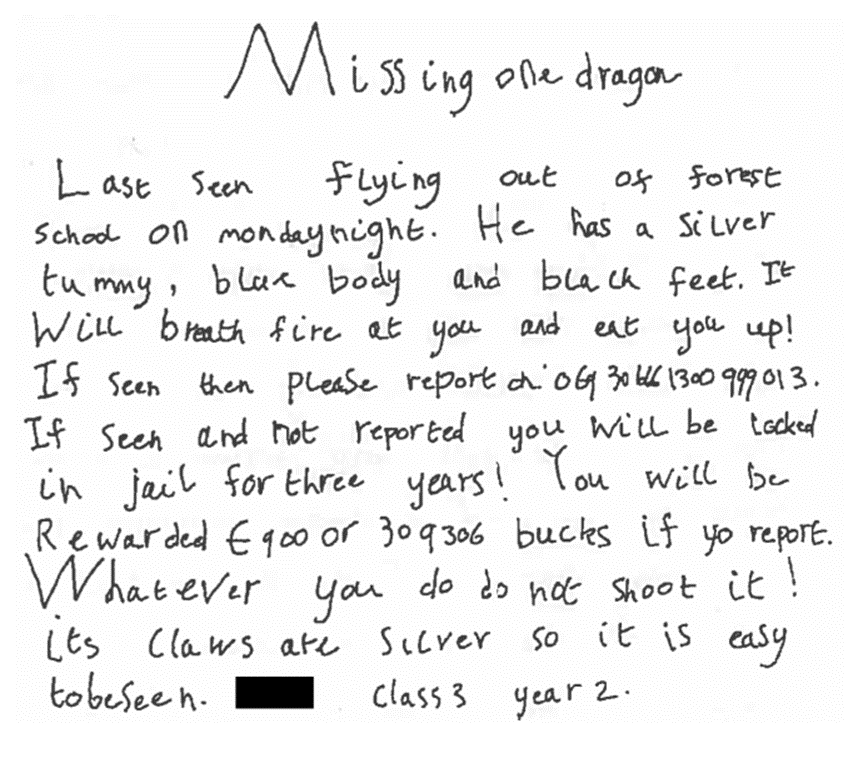 Missing one dragon
Last seen flying out of forest
school on mondaynight. He has a silver
tummy, blue body and black feet. It
Will breath fire at you and eat you up!
If seen then please report on: 069 30 666 1300 999 013.
If seen and not reported you will be locked
in jail for three years! You will be
Rewarded €900 or 309306 bucks if yo report.
Whatever you do do not shoot it!
its claws are silver so it is easy
tobeseen. Class 3 year 2.